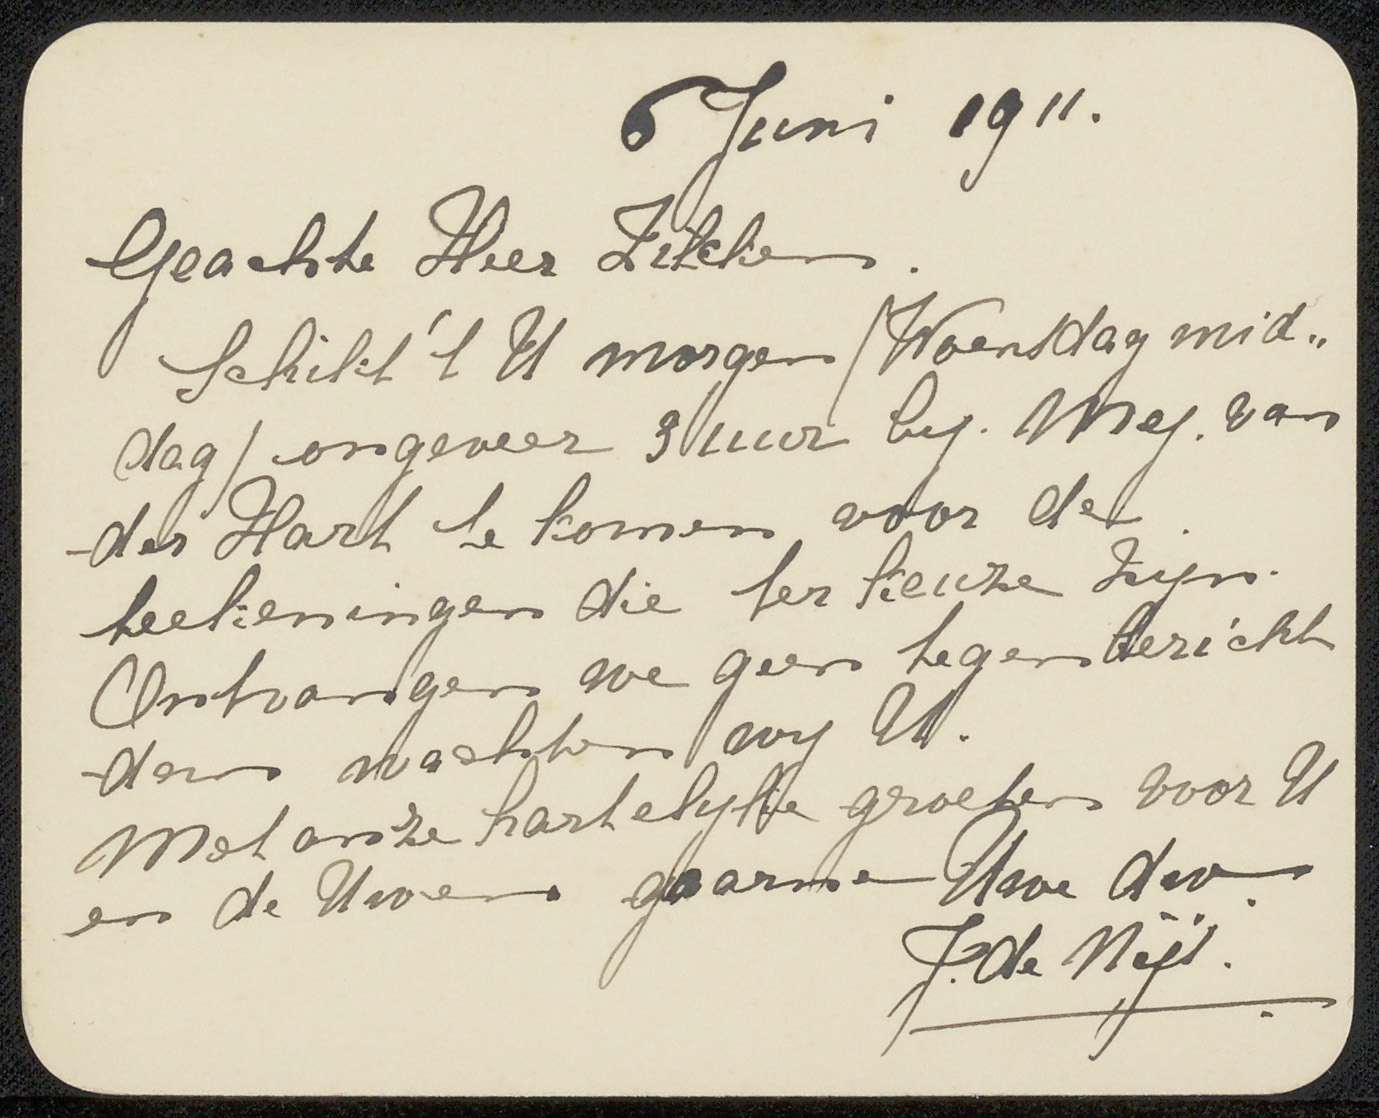 6 Juni 1911.
Geachte Heer Zilcken.
Schikt 't U morgen (Woensdag mid„
dag) ongeveer 3 uur by. Mej. van
der Hart te komen voor de
teekeningen die ter keuze zijn.
Ontvangen we geen tegenbericht
dan wachten wy U.
Met onze hartelyke groeten voor U
en de Uwen gaarne Uwe dw.
J. de Nijs.